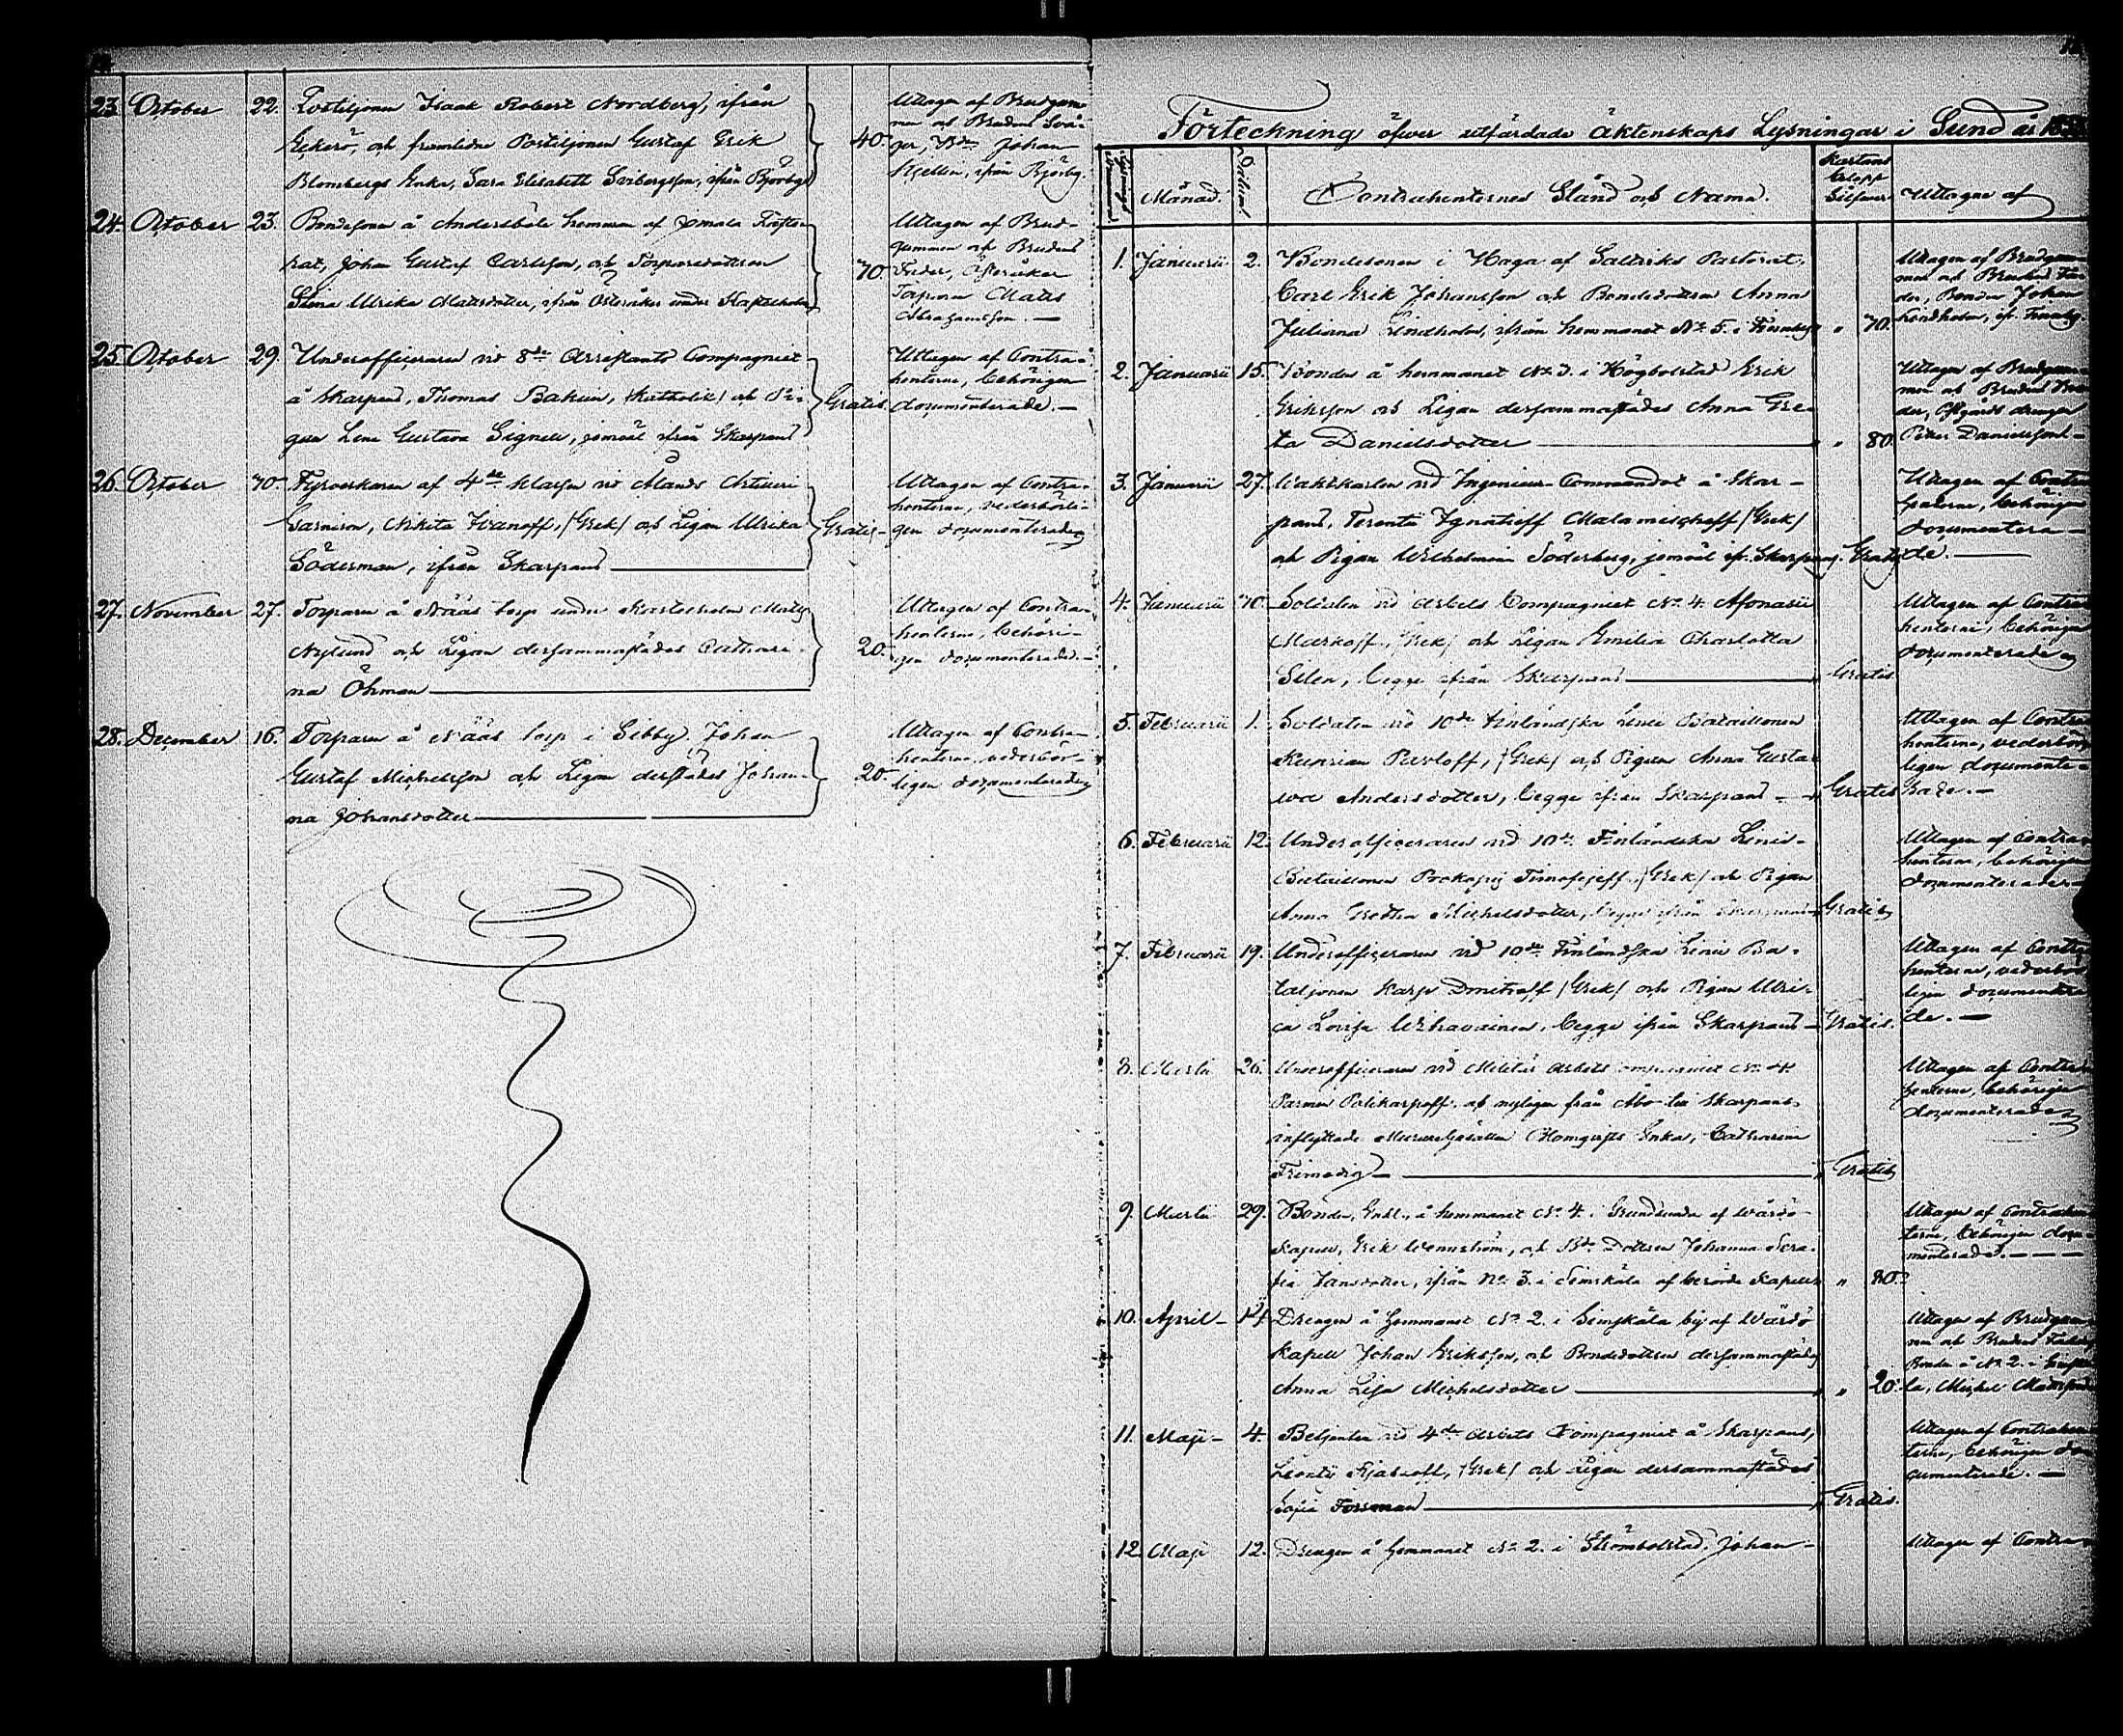 23. October 22. Postiljonen Isaak Robert Nordberg, ifrån
Eckerö, och framlidne Postiljonen Gustaf Erik
Blombergs Enka, Sara Elisabeth Svibergsson, ifrån Bjärby
40.
Uttagen af Brudgum-
men och Brudens Svå-
ger, Bde Johan
Kjellin, ifrån Bjärby.
24. October 23. Bondesonen å Andersböle hemman af Jomala
Johan Gustaf Carlsson, och Torparedottren
Lena Ulrika Matsdotter, ifrån Österåker under Kastelholm
70.
Uttagen af Brud-
gummen och Brudens
Fader, Österåker
Torparen Matts
Abrahamsson. —
25. October 29. Underofficeraren vid 8de Arrestants Compagniet
å Skarpans, Thomas /Katholik/ och Pi-
gan Lena Gustava Signell, jemväl ifrån Skarpans
Gratis.
Uttagen af Contra-
henterne, behörigen
documenterade. —
26. October 30. Fyrverkaren af 4de klassen vid Ålands Artilleri
Garnison, Nikita Ivanoff, /Grek/ och Pigan Ulrika
Söderman, ifrån Skarpans
Gratis
Uttagen af Contra-
henterne, vederbörli-
gen documenterade
27. November 27. Torparen å Nääs torp under Kastelholm Matts
Nylund och Pigan dersammastädes Cathari-
na Öhman
20.
Uttagen af Contra-
henterne, behöri-
gen documenterade. —
28. December 16. Torparen å Nääs torp i Sibby Johan
Gustaf Michelsson och Pigan derstädes Johan-
na Johansdotter
20.
Uttagen af Contra-
henterne, vederbör-
ligen documenterade
Förteckning öfver utfärdade Äktenskaps Lysningar i Sund år
Månad. Datum. Contrahenternes Stånd och Namn. Silfver Uttagne af
1. Januarii 2. Bondesonen i Haga af Saltviks Pastorat,
Carl Erik Johansson och Bondedottren Anna
Juliana Lindholm, ifrån hemmanet No 5. i Finnby
" 70.
Uttagen af Brudgum-
men och Brudens Fa-
der, Bonden Johan
Lindholm, ifr. Finnby.
2. Januarii 15. Bonden å hemmanet No 3. i Högbolstad Erik
Eriksson och Pigan dersammastädes Anna Gre-
ta Danielsdotter
" 80.
Uttagen af Brudgum-
men och Brudens Bro-
der, drengen
Petter Danielsson. —
3. Januarii 27. Vaktkarlen vid Ingenieur-Commandot å Skar-
pans, Terentii Ignatieff /Grek/
och Pigan Wilhelmina Söderberg, jemväl ifr. Skarpans.
Gratis
Uttagen af Contra-
henterne, behörigen
documentera-
de.
4. Januarii 30. Soldaten vid Arbets Compagniet No 4. Afonasii
Markoff, /Grek/ och Pigan Emilia Charlotta
Silen, begge ifrån Skarpans
Gratis
Uttagen af Contra-
henterne, behörigen
documenterade
5. Februarii 1. Soldaten vid 10de Finländska Linie Bataillonen
Pavloff, /Grek/ och Pigan Anna Gusta-
va Andersdotter, begge ifrån Skarpans
Gratis
Uttagen af Contra-
henterne, vederbör-
ligen documente-
rade. —
6. Februarii 12. Underofficeraren vid 10de Finländska Linie-
Bataillonen Prokopij Timofejeff, /Grek/ och Pigan
Anna Greta Michelsdotter, begge ifrån Skarpans
Gratis
Uttagen af Contra-
henterne, behörigen
documenterade
7. Februarii 19. Underofficeraren vid 10de Finländska Linie Ba-
taljonen Karp Dmitreff /Grek/ och Pigan Ulri-
ca Lovisa Wihavainen, begge ifrån Skarpans
Gratis.
Uttagen af Contra-
henterne, vederbör-
ligen documentera-
de. —
8. Martii 26. Underofficeraren vid Militär Arbets Compagniet No 4.
Parmen Polikarpoff, och nyligen från Åbo till Skarpans
inflyttade Murare Gesällen Blomqvists Enka, Catharina
Frimodig
Gratis
Uttagen af Contra-
henterne, behörigen
documenterade
9. Martii 29. Bonden, Enkl., å hemmanet No 4. i Grundsunda af Wårdö
Kapell, Erik Wennström, och Bde Dottren Johanna Sera-
fia Jansdotter, ifrån No 3. i Simskäla af berörde Kapell
" 80.
Uttagen af Contrahen-
terne, behörigen docu-
menterade. — — —
10. April 14. Drengen å hemmanet No 2. i Simskäla by af Wårdö
Kapell Johan Eriksson, och Bondedottren dersammastädes
Anna Lisa Michelsdotter
" 20.
Uttagen af Brudgum-
men och Brudens Fader,
Bonden å No 2. i Simskä-
la, Michel Mattsson
11. Maji 4. Betjenten vid 4de Arbets Compagniet å Skarpans,
Leontii /Grek/ och Pigan dersammastädes
Sofia Forsman
Gratis.
Uttagen af Contrahen-
terne, behörigen do-
cumenterade. —
12. Maji 12. Drengen å hemmanet No 2. i Strömbolstad, Johan
Uttagen af Contra-